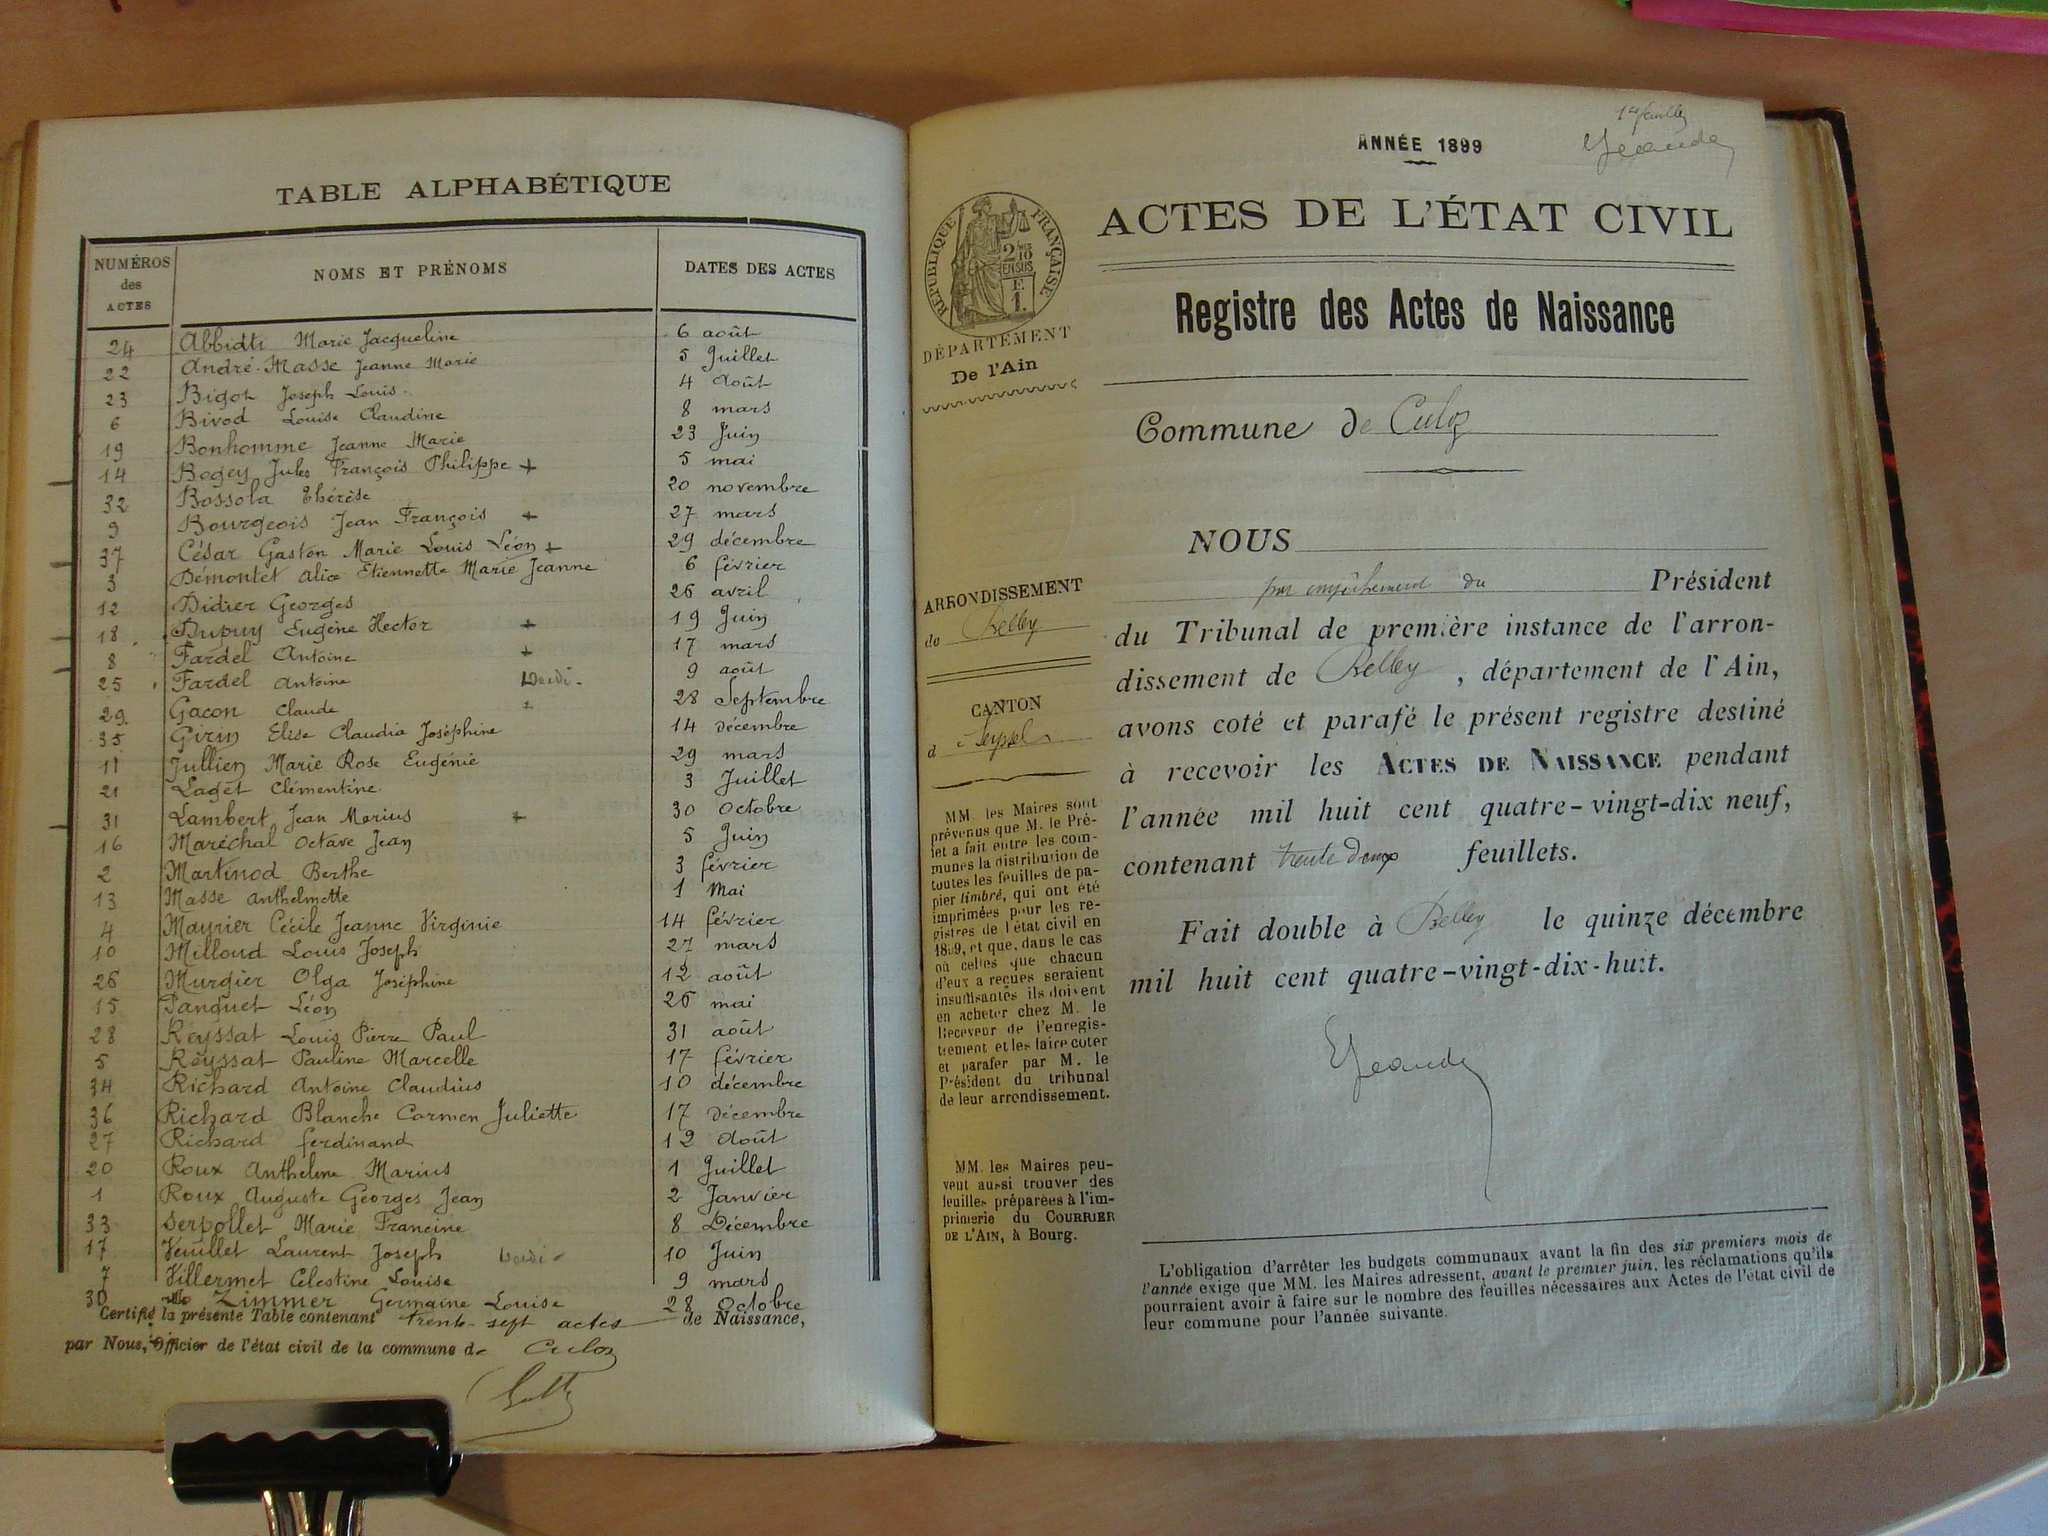 TABLE ALPHABÉTIQUE
NUMÉROS des ACTES NOMS ET PRÉNOMS DATES DES ACTES
24 Abbiati Marie Jacqueline 6 août
22 André-Masse Jeanne Marie 5 Juillet
23 Bigot Joseph Louis 4 Août
6 Bivod Louise Claudine 8 mars
19 Bonhomme Jeanne Marie 23 Juin
14 Bogey Jules François Philippe + 5 mai
32 Bossola Thérèse 20 novembre
9 Bourgeois Jean François + 27 mars
37 César Gaston Marie Louis Léon + 29 décembre
3 Démontet Alice Etiennette Marie Jeanne 6 février
12 Didier Georges 26 avril
18 Dupuy Eugène Hector + 19 Juin
8 Fardel Antoine + 17 mars
25 Fardel Antoine 9 août
29 Gacon Claude + 28 Septembre
35 Girin Elise Claudia Joséphine 14 décembre
11 Jullien Marie Rose Eugénie 29 mars
21 Laget Clémentine 3 Juillet
31 Lambert Jean Marius + 30 Octobre
16 Maréchal Octave Jean 5 Juin
2 Martinod Berthe 3 février
13 Masse Anthelmette 1 Mai
4 Maurier Cécile Jeanne Virginie 14 février
10 Milloud Louis Joseph 27 mars
26 Murgier Olga Joséphine 12 août
15 Panguet Léon 26 mai
28 Reyssat Louis Pierre Paul 31 août
5 Reyssat Pauline Marcelle 17 février
34 Richard Antoine Claudius 10 décembre
36 Richard Blanche Carmen Juliette 17 Décembre
27 Richard ferdinand 12 Août
20 Roux Anthelme Marius 1 Juillet
1 Roux Auguste Georges Jean 2 Janvier
33 Serpollet Marie Francine 8 Décembre
17 Veuillet Laurent Joseph 10 Juin
7 Villermet Célestine Louise 9 mars
30 Zimmer Germaine Louise 28 Octobre
Certifié la présente Table contenant trente-sept actes de Naissance,
par Nous, Officier de l'état civil de la commune de Culoz
ANNÉE 1899
RÉPUBLIQUE FRANÇAISE
DÉPARTEMENT
De l'Ain
ACTES DE L'ÉTAT CIVIL
Registre des Actes de Naissance
Commune de Culoz
ARRONDISSEMENT
de Belley
CANTON
d Seyssel
MM. les Maires sont
prévenus que M. le Pré-
fet a fait entre les com-
munes la distribution de
toutes les feuilles de pa-
pier timbré, qui ont été
imprimées pour les re-
gistres de l'état civil en
1899, et que, dans le cas
où celles que chacun
d'eux a reçues seraient
insuffisantes ils doivent
en acheter chez M. le
Receveur de l'enregis-
trement et les faire coter
et parafer par M. le
Président du tribunal
de leur arrondissement.
MM. les Maires peu-
vent aussi trouver des
feuilles préparées à l'im-
primerie du COURRIER
DE L'AIN, à Bourg.
NOUS
par empêchement du Président
du Tribunal de première instance de l'arron-
dissement de Belley, département de l'Ain,
avons coté et parafé le présent registre destiné
à recevoir les ACTES DE NAISSANCE pendant
l'année mil huit cent quatre-vingt-dix neuf,
contenant trente deux feuillets.
Fait double à Belley le quinze décembre
mil huit cent quatre-vingt-dix-huit.
L'obligation d'arrêter les budgets communaux avant la fin des six premiers mois de
l'année exige que MM. les Maires adressent, avant le premier juin, les réclamations qu'ils
pourraient avoir à faire sur le nombre des feuilles nécessaires aux Actes de l'état civil de
leur commune pour l'année suivante.